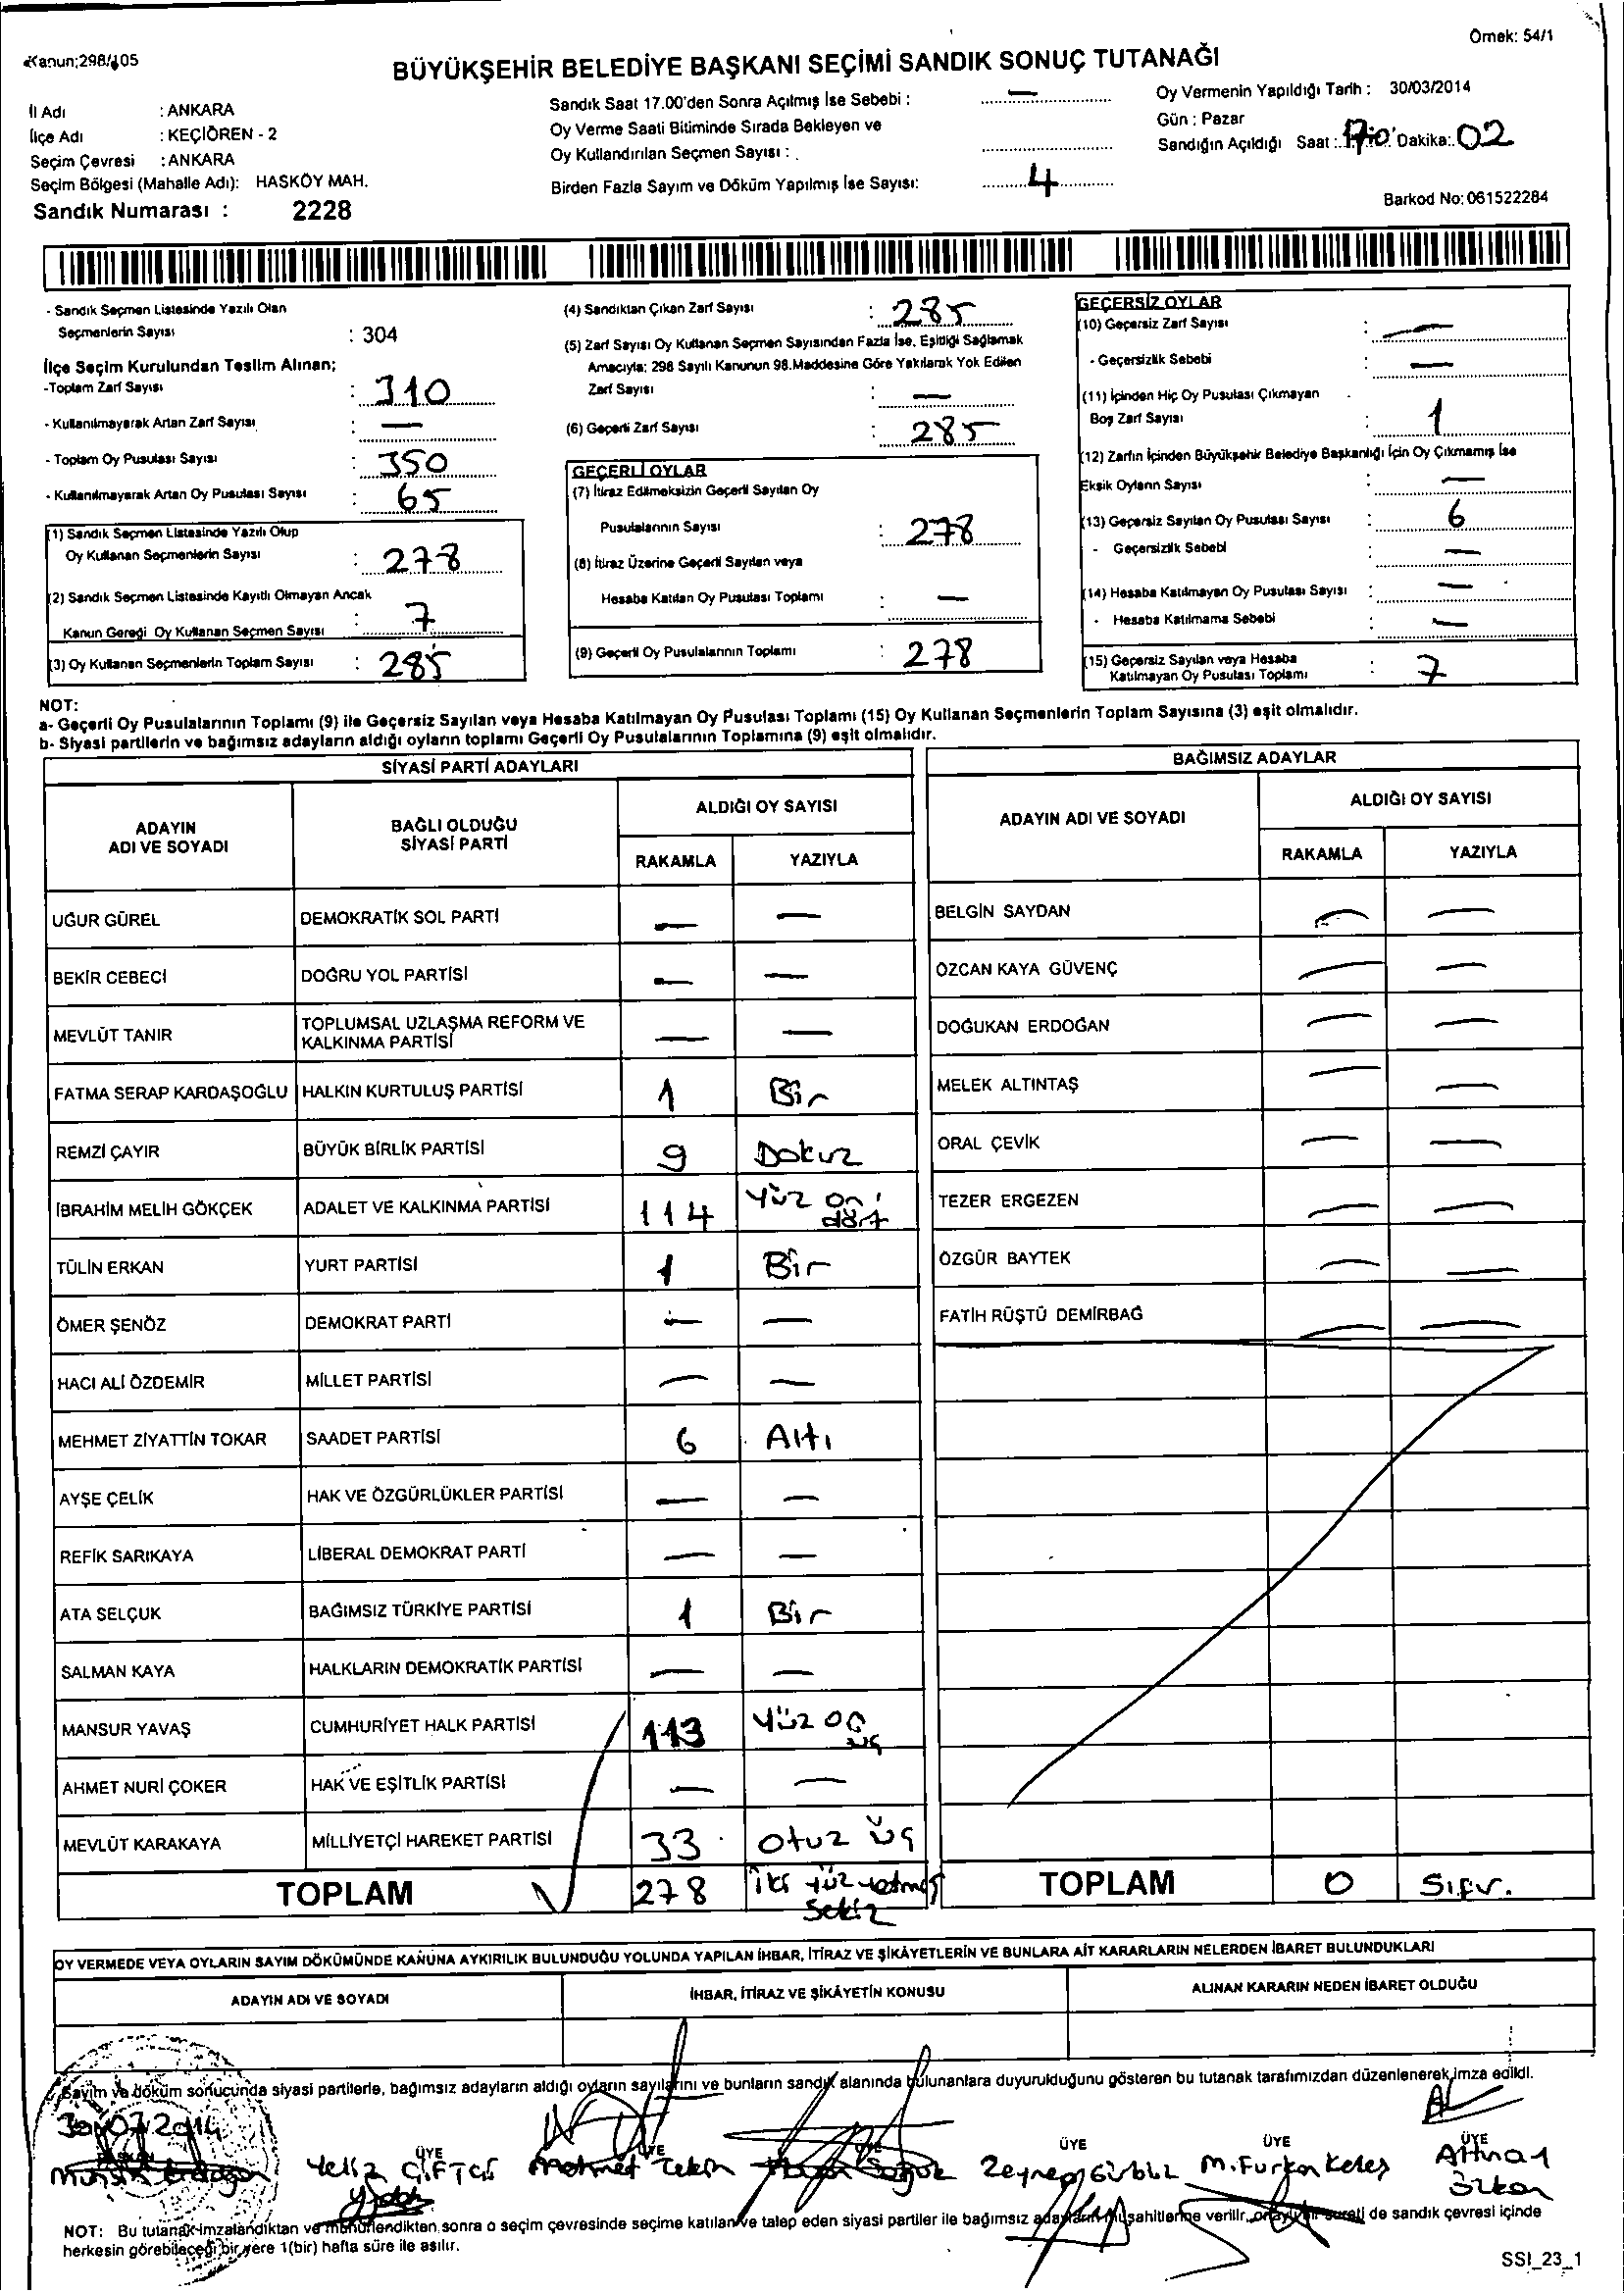 Kanun;298/105
Örnek: 54/1
BÜYÜKŞEHİR BELEDİYE BAŞKANI SEÇİMİ SANDIK SONUÇ TUTANAĞI
İl Adı : ANKARA
İlçe Adı : KEÇİÖREN - 2
Seçim Çevresi : ANKARA
Seçim Bölgesi (Mahalle Adı): HASKÖY MAH.
Sandık Numarası : 2228
Sandık Saat 17.00'den Sonra Açılmış İse Sebebi : —
Oy Verme Saati Bitiminde Sırada Bekleyen ve
Oy Kullandırılan Seçmen Sayısı :
Birden Fazla Sayım ve Döküm Yapılmış İse Sayısı: 4
Oy Vermenin Yapıldığı Tarih : 30/03/2014
Gün : Pazar
Sandığın Açıldığı Saat : Dakika: 02
Barkod No: 061522284
- Sandık Seçmen Listesinde Yazılı Olan
Seçmenlerin Sayısı : 304
İlçe Seçim Kurulundan Teslim Alınan;
-Toplam Zarf Sayısı : 310
- Kullanılmayarak Artan Zarf Sayısı : —
- Toplam Oy Pusulası Sayısı : 350
- Kullanılmayarak Artan Oy Pusulası Sayısı : 65
(1) Sandık Seçmen Listesinde Yazılı Olup
Oy Kullanan Seçmenlerin Sayısı : 278
(2) Sandık Seçmen Listesinde Kayıtlı Olmayan Ancak
Kanun Gereği Oy Kullanan Seçmen Sayısı : 7
(3) Oy Kullanan Seçmenlerin Toplam Sayısı : 285
(4) Sandıktan Çıkan Zarf Sayısı : 285
(5) Zarf Sayısı Oy Kullanan Seçmen Sayısından Fazla İse, Eşitliği Sağlamak
Amacıyla; 298 Sayılı Kanunun 98.Maddesine Göre Yakılarak Yok Edilen
Zarf Sayısı : —
(6) Geçerli Zarf Sayısı : 285
GEÇERLİ OYLAR
(7) İtiraz Edilmeksizin Geçerli Sayılan Oy
Pusulalarının Sayısı : 278
(8) İtiraz Üzerine Geçerli Sayılan veya
Hesaba Katılan Oy Pusulası Toplamı : —
(9) Geçerli Oy Pusulalarının Toplamı : 278
GEÇERSİZ OYLAR
(10) Geçersiz Zarf Sayısı : —
- Geçersizlik Sebebi : —
(11) İçinden Hiç Oy Pusulası Çıkmayan
Boş Zarf Sayısı : 1
(12) Zarfın İçinden Büyükşehir Belediye Başkanlığı İçin Oy Çıkmamış İse
Eksik Oyların Sayısı : —
(13) Geçersiz Sayılan Oy Pusulası Sayısı : 6
- Geçersizlik Sebebi : —
(14) Hesaba Katılmayan Oy Pusulası Sayısı : —
- Hesaba Katılmama Sebebi : —
(15) Geçersiz Sayılan veya Hesaba
Katılmayan Oy Pusulası Toplamı : 7
NOT:
a- Geçerli Oy Pusulalarının Toplamı (9) ile Geçersiz Sayılan veya Hesaba Katılmayan Oy Pusulası Toplamı (15) Oy Kullanan Seçmenlerin Toplam Sayısına (3) eşit olmalıdır.
b- Siyasi partilerin ve bağımsız adayların aldığı oyların toplamı Geçerli Oy Pusulalarının Toplamına (9) eşit olmalıdır.
SİYASİ PARTİ ADAYLARI
ADAYIN ADI VE SOYADI
BAĞLI OLDUĞU SİYASİ PARTİ
ALDIĞI OY SAYISI
RAKAMLA YAZIYLA
UĞUR GÜREL DEMOKRATİK SOL PARTİ — —
BEKİR CEBECİ DOĞRU YOL PARTİSİ — —
MEVLÜT TANIR TOPLUMSAL UZLAŞMA REFORM VE KALKINMA PARTİSİ — —
FATMA SERAP KARDAŞOĞLU HALKIN KURTULUŞ PARTİSİ 1 Bir
REMZİ ÇAYIR BÜYÜK BİRLİK PARTİSİ 9 Dokuz
İBRAHİM MELİH GÖKÇEK ADALET VE KALKINMA PARTİSİ 114 Yüz on dört
TÜLİN ERKAN YURT PARTİSİ 1 Bir
ÖMER ŞENÖZ DEMOKRAT PARTİ — —
HACI ALİ ÖZDEMİR MİLLET PARTİSİ — —
MEHMET ZİYATTİN TOKAR SAADET PARTİSİ 6 Altı
AYŞE ÇELİK HAK VE ÖZGÜRLÜKLER PARTİSİ — —
REFİK SARIKAYA LİBERAL DEMOKRAT PARTİ — —
ATA SELÇUK BAĞIMSIZ TÜRKİYE PARTİSİ 1 Bir
SALMAN KAYA HALKLARIN DEMOKRATİK PARTİSİ — —
MANSUR YAVAŞ CUMHURİYET HALK PARTİSİ 113 Yüz on üç
AHMET NURİ ÇOKER HAK VE EŞİTLİK PARTİSİ — —
MEVLÜT KARAKAYA MİLLİYETÇİ HAREKET PARTİSİ 33 Otuz üç
TOPLAM 278 iki yüz yetmiş Sekiz
BAĞIMSIZ ADAYLAR
ADAYIN ADI VE SOYADI
ALDIĞI OY SAYISI
RAKAMLA YAZIYLA
BELGİN SAYDAN — —
ÖZCAN KAYA GÜVENÇ — —
DOĞUKAN ERDOĞAN — —
MELEK ALTINTAŞ — —
ORAL ÇEVİK — —
TEZER ERGEZEN — —
ÖZGÜR BAYTEK — —
FATİH RÜŞTÜ DEMİRBAĞ — —
TOPLAM 0 Sıfır.
OY VERMEDE VEYA OYLARIN SAYIM DÖKÜMÜNDE KANUNA AYKIRILIK BULUNDUĞU YOLUNDA YAPILAN İHBAR, İTİRAZ VE ŞİKÂYETLERİN VE BUNLARA AİT KARARLARIN NELERDEN İBARET BULUNDUKLARI
ADAYIN ADI VE SOYADI İHBAR, İTİRAZ VE ŞİKÂYETİN KONUSU ALINAN KARARIN NEDEN İBARET OLDUĞU
Sayım ve döküm sonucunda siyasi partilerle, bağımsız adayların aldığı oyların sayılarını ve bunların sandık alanında bulunanlara duyurulduğunu gösteren bu tutanak tarafımızdan düzenlenerek imza edildi.
ÜYE ÜYE ÜYE ÜYE ÜYE ÜYE
Yeliz ÇİFTÇİ Mehmet Tekin Zeynep Gürbüz M.Furkan Keleş
NOT: Bu tutanak imzalandıktan ve mühürlendikten sonra o seçim çevresinde seçime katılan ve talep eden siyasi partiler ile bağımsız adayların müşahitlerine verilir, onaylı bir sureti de sandık çevresi içinde
herkesin görebileceği bir yere 1(bir) hafta süre ile asılır.
SSI_23_1